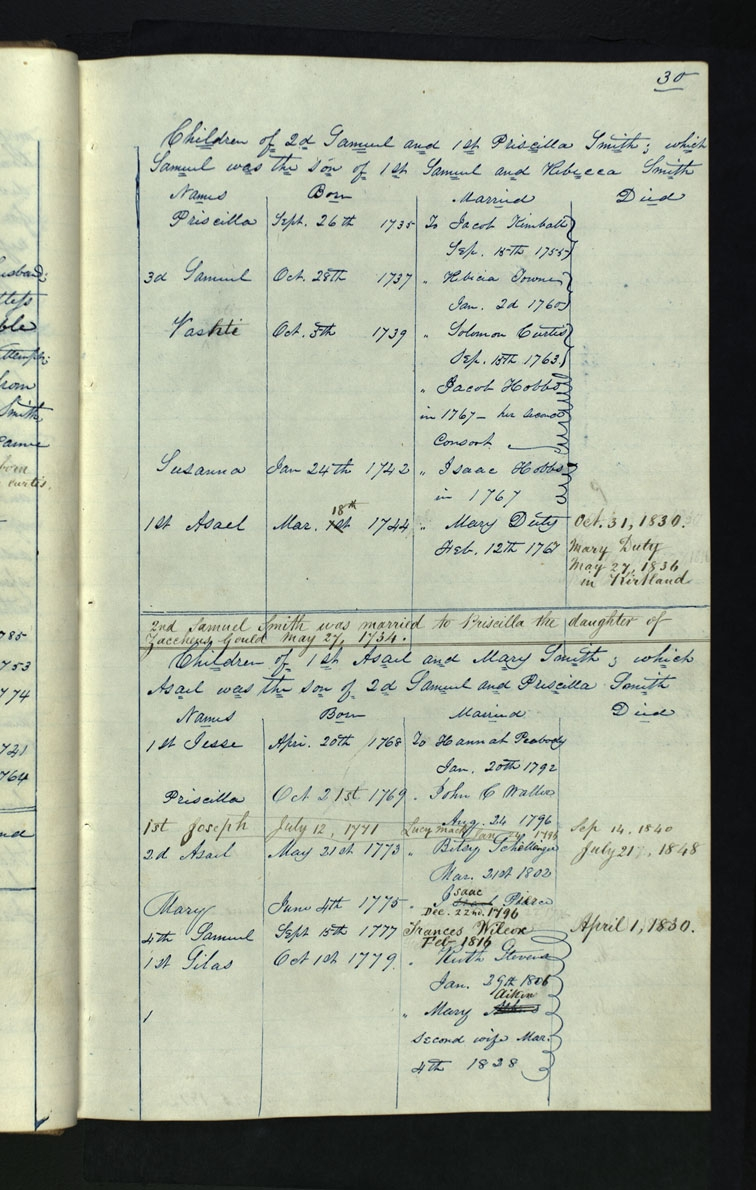 30
Children of 2d Samuel and 1st Priscilla Smith; which
Samuel was the son of 1st Samuel and Rebecca Smith
Names Born Married Died
Priscilla Sept. 26th 1735 To Jacob Kimball
Sep. 15th 1755
3d Samuel Oct. 28th 1737 " Rebecca Towne
Jan. 2d 1760
Vashti Oct. 5th 1739 " Solomon Curtis
Sep. 15th 1763
" Jacob Hobbs
in 1767 – her second
Consort
Susanna Jan 24th 1742 " Isaac Hobbs
in 1767
1st Asael Mar. 18th 1744 " Mary Duty Oct. 31, 1830.
Feb. 12th 1767 Mary Duty
May 27, 1836
in Kirtland
2nd Samuel Smith was married to Priscilla the daughter of
Zaccheus Gould May 27, 1734.
Children of 1st Asael and Mary Smith; which
Asael was the son of 2d Samuel and Priscilla Smith
Names Born Married Died
1st Jesse Apri. 20th 1768 To Hannah Peabody
Jan. 20th 1792
Priscilla Oct 21st 1769 " John C Waller
Aug. 24 1796
1st Joseph July 12, 1771 Lucy Mack Jan 24 1796 Sep 14, 1840
2d Asael May 21st 1773 " Betsy Schellenger July 21, 1848
Mar. 21st 1802
Mary June 4th 1775 " Isaac Pierce
Dec. 22nd. 1796
4th Samuel Sept 15th 1777 Frances Wilcox April 1, 1830.
Feb- 1816
1st Silas Oct 1st 1779 " Ruth Stevens
Jan. 29th 1806
Aitkin
1 " Mary
second wife Mar.
4th 1828